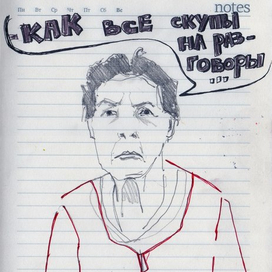 Пн Вт Ср Чт Пт Сб Вс
notes
-КАК ВСЕ СКУПЫ
НА РАЗ-
ГОВОРЫ
...